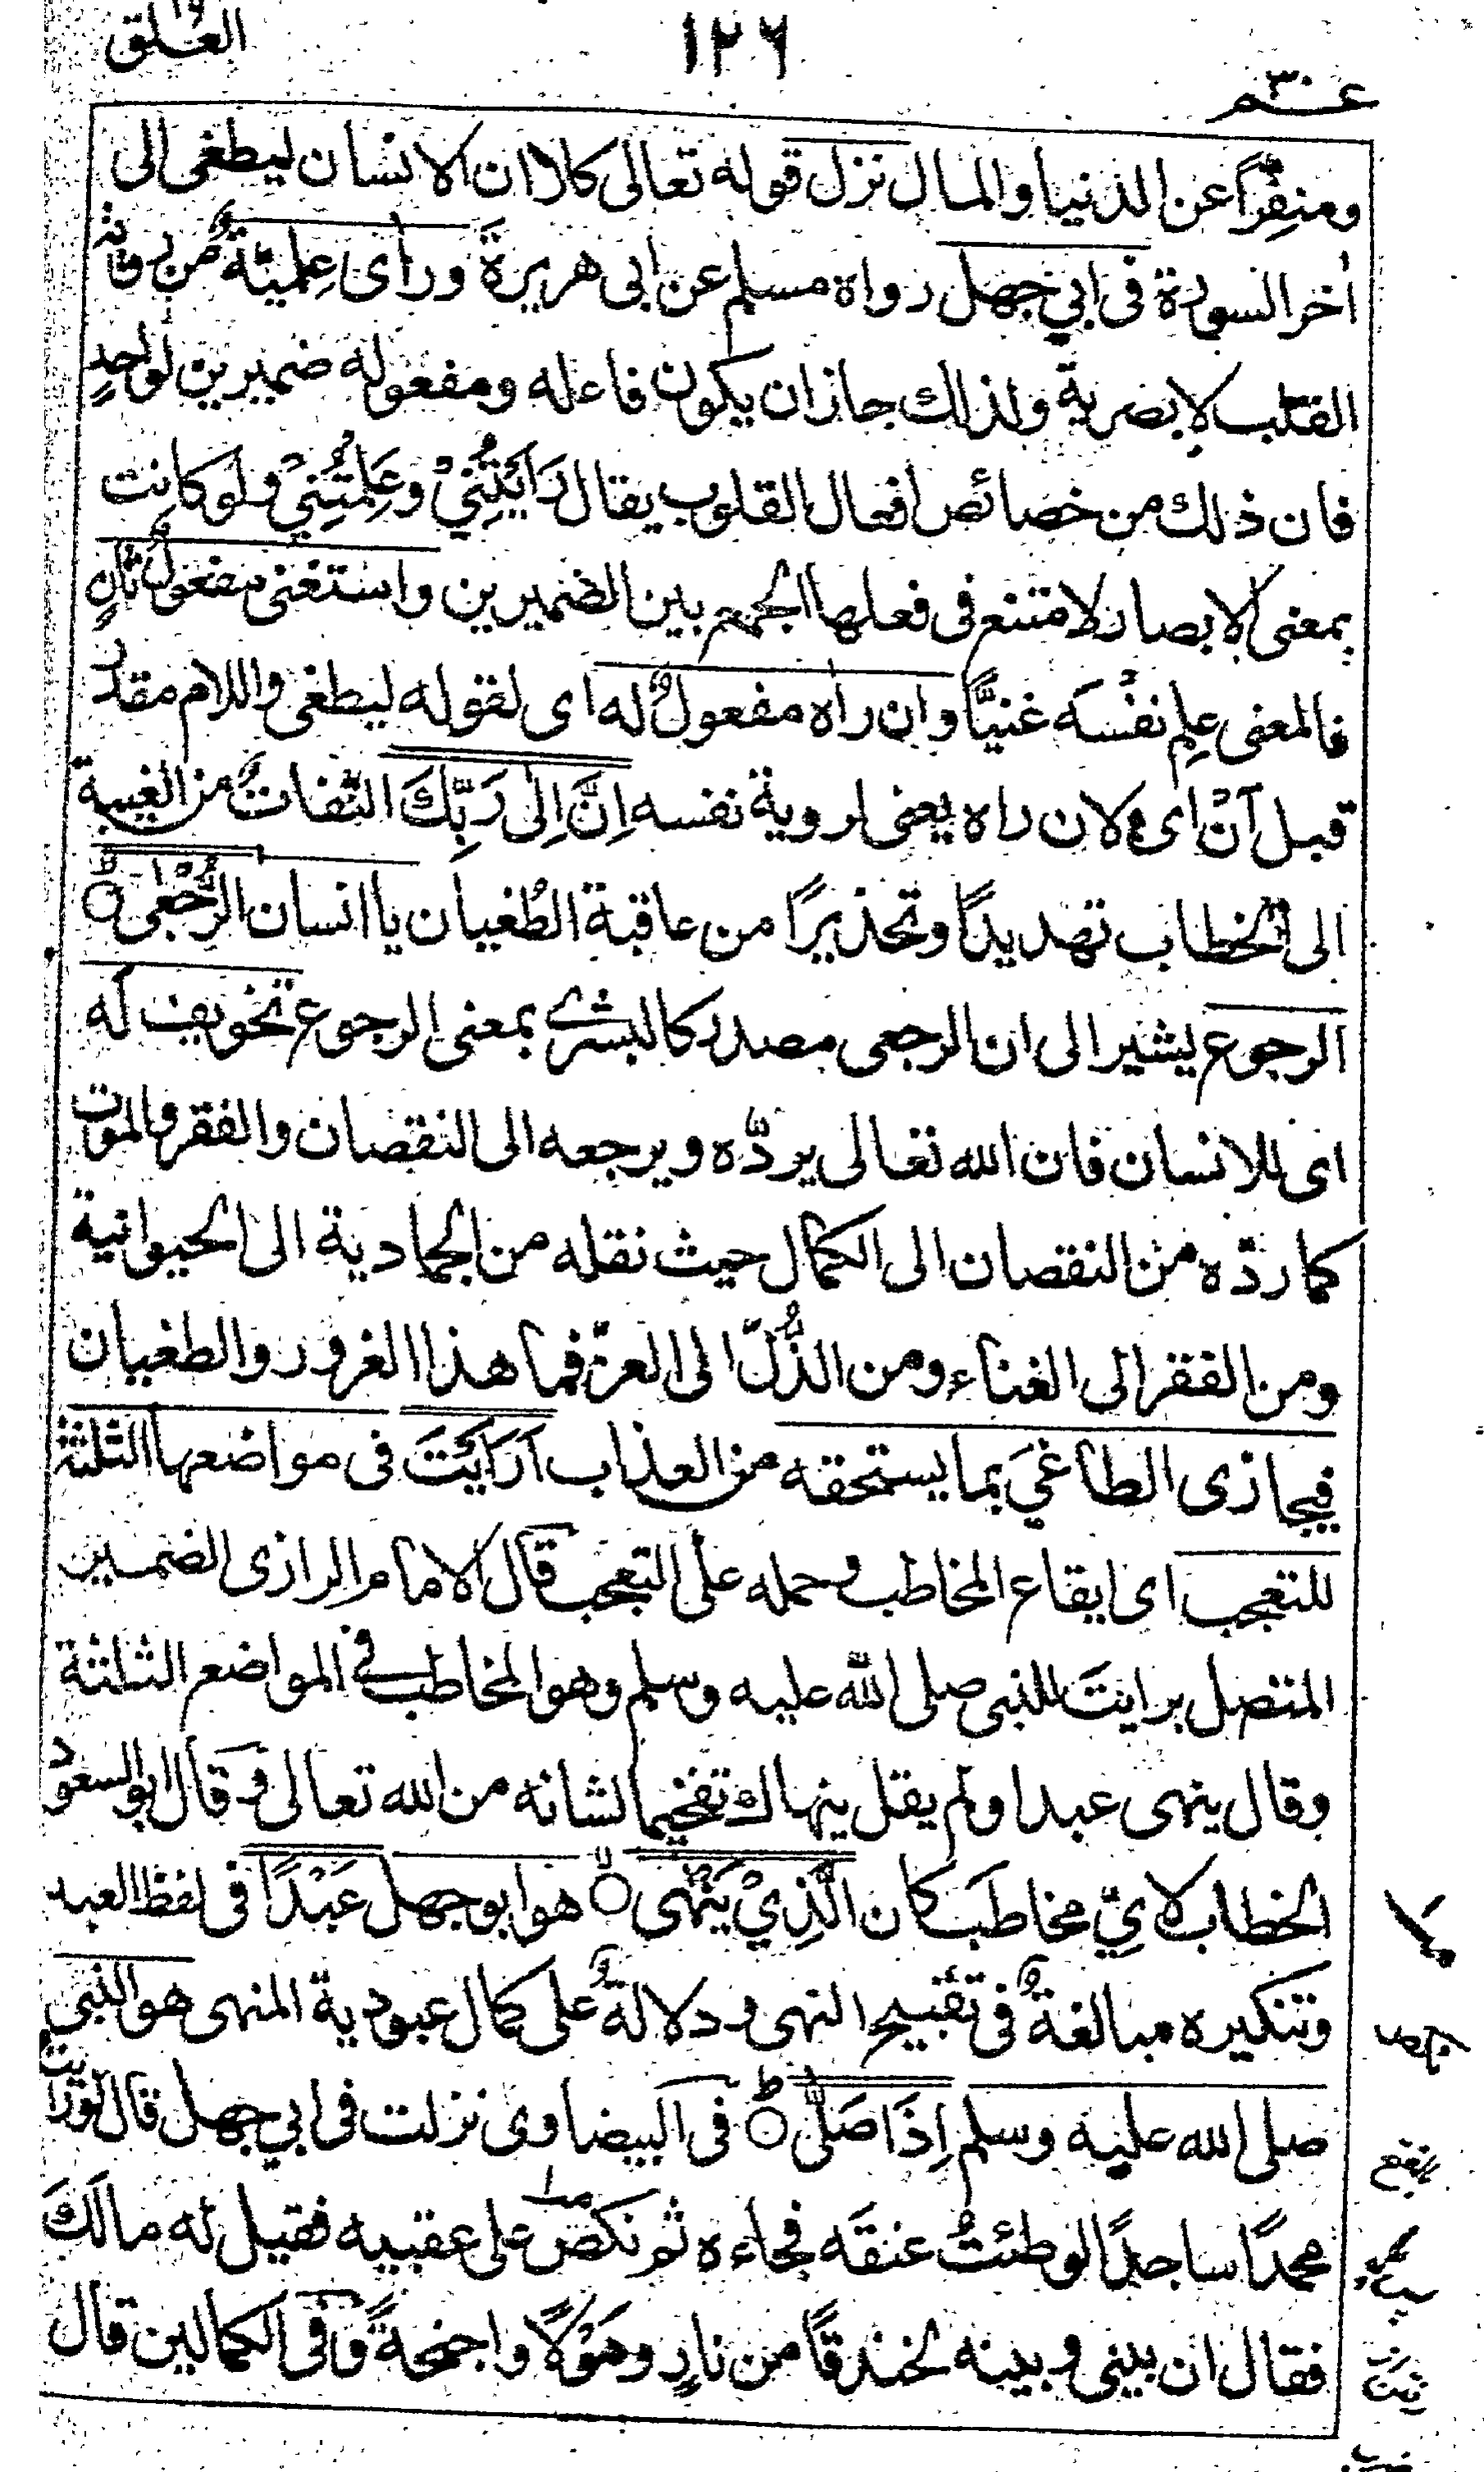 العلق
١٢٦
عم ٣٠
ومنفِّرًا عن الدنيا والمال نزل قوله تعالى كلا ان الانسان ليطغى الى
اٰخر السورة فى ابي جهل رواه مسلم عن ابى هريرةَ ورأى عِلميّةٌ من رؤية
القلب لا بصرية ولذلك جاز ان يكون فاعله ومفعوله ضميرين لواحدٍ
فان ذلك من خصائص افعال القلوب يقال رَاَيْتُنِيْ وعَلِمْتُنِيْ ولو كانت
بمعنى الابصار لامتنع فى فعلها الجمع بين الضميرين واستغنى مفعولٌ ثانٍ
فالمعنى علِم نفْسَه غنيًّا وان راٰه مفعولٌ له اى لقوله ليطغى واللام مقدر
قبل اَنْ اى لان راٰه يعنى لروية نفسه اِنَّ اِلٰى رَبِّكَ التفاتٌ من الغيبة
الى الخطاب تهديدًا وتحذيرًا من عاقبة الطُغيان يا انسان الرُّجْعٰى ط
الرجوع يشير الى ان الرجعى مصدر كالبشرى بمعنى الرجوع تخويف له
اى للانسان فان الله تعالى يردّه ويرجعه الى النقصان والفقر والموت
كما ردّه من النقصان الى الكمال حيث نقله من الجمادية الى الحيوانية
ومن الفقر الى الغناء ومن الذُّلّ الى العزّ فما هذا الغرور والطغيان
فيجازى الطاغيَ بما يستحقه من العذاب اَرَاَيْتَ فى مواضعها الثلثة
للتعجب اى ايقاع المخاطب وحمله على التعجب قال الامام الرازى الضمير
المتصل برايتَ للنبى صلى الله عليه وسلم وهو المخاطب فى المواضع الثلثة
وقال ينهى عبدا ولم يقل ينهاك تفخيما لشانه من الله تعالى وقال ابو السعود
الخطاب لايِّ مخاطَب كان الَّذِيْ يَنْهٰى لا هو ابو جهل عَبْدًا فى لفظ العبد
وتنكيره مبالغةٌ فى تقبيح النهى ودلالةٌ على كمال عبودية المنهى هو النبي
صلى الله عليه وسلم اِذَا صَلّٰى ط فى البيضاوى نزلت فى ابي جهل قال لو رايت
محمدًا ساجدًا لوطئتُ عنقَه فجاءه ثم نكص على عقبيه فقيل له مالَكَ
فقال ان بينى وبينه لخندقًا من نارٍ وهَوْلًا واجنحةً وفى الكمالين قال